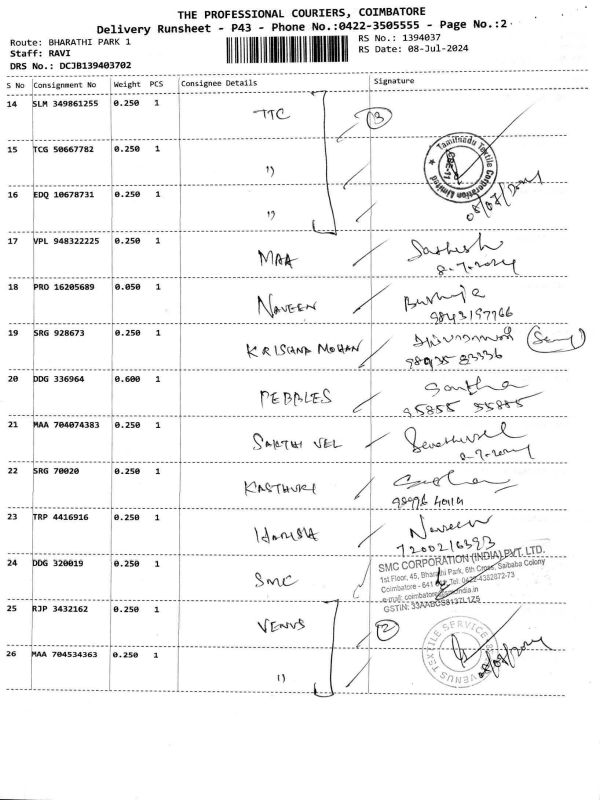 THE PROFESSIONAL COURIERS, COIMBATORE
Delivery Runsheet - P43 - Phone No.:0422-3505555 - Page No.:2
Route: BHARATHI PARK 1
RS No.: 1394037
Staff: RAVI
RS Date: 08-Jul-2024
DRS No.: DCJB139403702
S No Consignment No Weight PCS Consignee Details Signature
14 SLM 349861255 0.250 1 TTC 3
15 TCG 50667782 0.250 1 "
Tamilnadu Textile Corporation Limited
16 EDQ 10678731 0.250 1 "
08/07/2024
17 VPL 948322225 0.250 1 MAA Sathish
8-7-2024
18 PRO 16205689 0.050 1 NAVEEN
9843197766
19 SRG 928673 0.250 1 KRISHNA MOHAN
20 DDG 336964 0.600 1 PEBBLES
95855 55885
21 MAA 704074383 0.250 1 SAKTHI VEL
8-7-2024
22 SRG 70020 0.250 1 KASTHURI
23 TRP 4416916 0.250 1 HARISH Naveen
7200216393
24 DDG 320019 0.250 1 SMC
SMC CORPORATION (INDIA) PVT. LTD.
1st Floor, 45, Bharathi Park, 6th Cross, Saibaba Colony
Coimbatore - 641 Tel: 0422-4382872-73
GSTIN: 33AABCS8137L1Z5
25 RJP 3432162 0.250 1 VENUS 2
VENUS TEXTILE SERVICE
26 MAA 704534363 0.250 1 "
08/07/2024